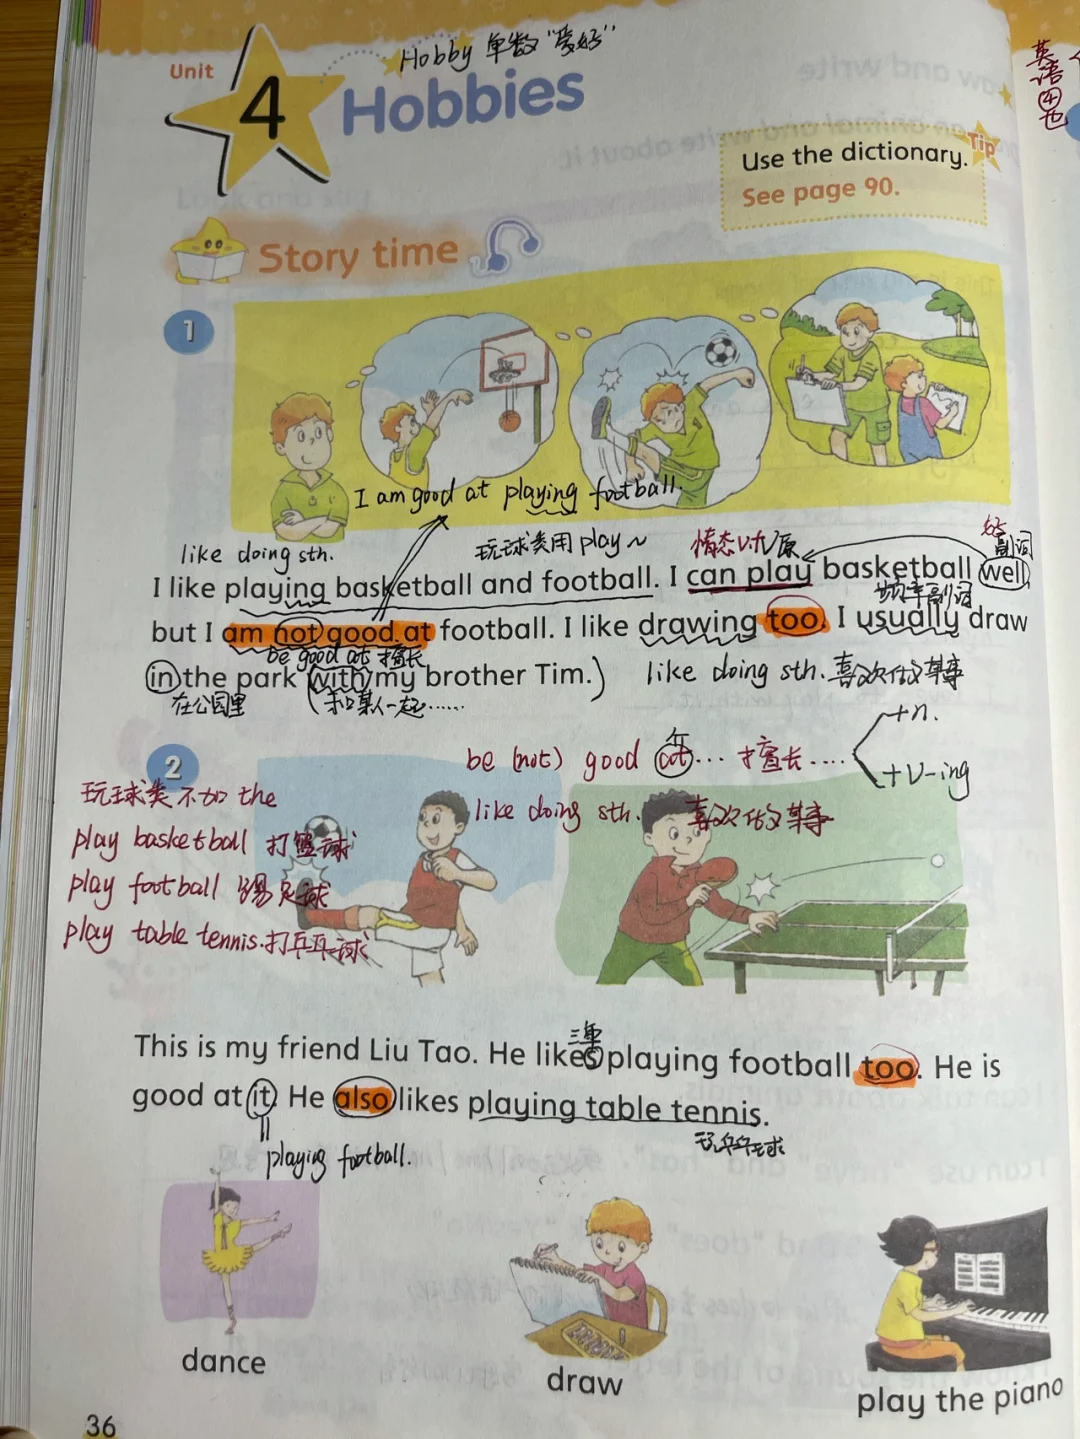 Hobby 单数"爱好"
Unit
4
Hobbies
英语④也
Tip
Use the dictionary.
See page 90.
Story time
1
I am good at playing football.
like doing sth.
玩球类用play~
情态V. V原
好
副词
I like playing basketball and football. I can play basketball well,
频率副词
but I am not good at football. I like drawing too. I usually draw
be good at 擅长
in the park with my brother Tim.
like doing sth. 喜欢做某事
在公园里
(和某人一起……
+n.
be (not) good at… 擅长……
+V-ing
2
like doing sth. 喜欢做某事
玩球类不加 the
play basketball 打篮球
play football 踢足球
play table tennis.打乒乓球
三单
This is my friend Liu Tao. He likes playing football too. He is
good at it. He also likes playing table tennis.
玩乒乓球
playing football.
dance
draw
play the piano
36